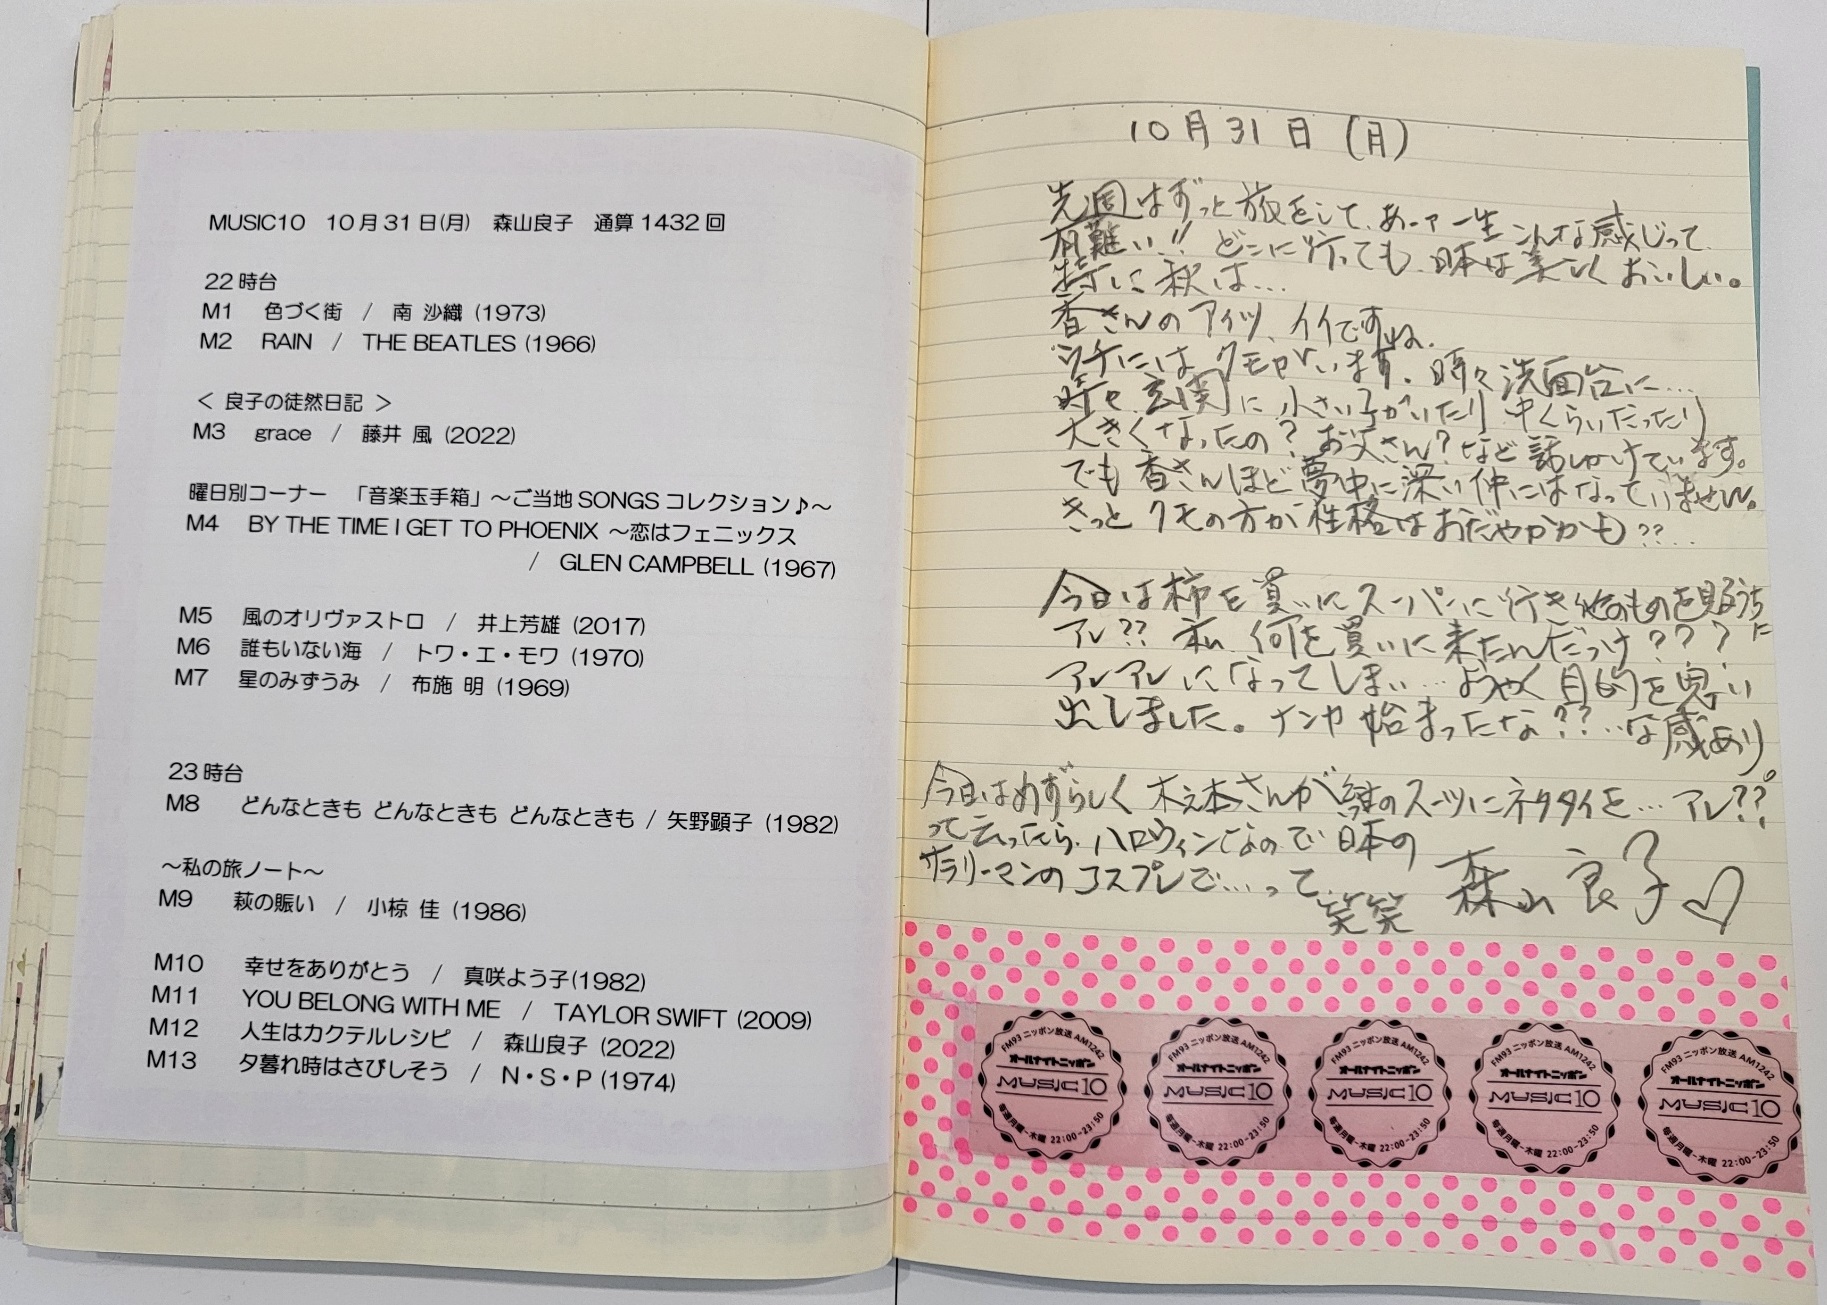 MUSIC10 10月31日(月) 森山良子 通算1432回
22時台
M1 色づく街 / 南 沙織 (1973)
M2 RAIN / THE BEATLES (1966)
< 良子の徒然日記 >
M3 grace / 藤井 風 (2022)
曜日別コーナー 「音楽玉手箱」～ご当地SONGSコレクション♪～
M4 BY THE TIME I GET TO PHOENIX ～恋はフェニックス
/ GLEN CAMPBELL (1967)
M5 風のオリヴァストロ / 井上芳雄 (2017)
M6 誰もいない海 / トワ・エ・モワ (1970)
M7 星のみずうみ / 布施 明 (1969)
23時台
M8 どんなときも どんなときも どんなときも / 矢野顕子 (1982)
～私の旅ノート～
M9 萩の賑い / 小椋 佳 (1986)
M10 幸せをありがとう / 真咲よう子(1982)
M11 YOU BELONG WITH ME / TAYLOR SWIFT (2009)
M12 人生はカクテルレシピ / 森山良子 (2022)
M13 夕暮れ時はさびしそう / N・S・P (1974)
10月31日(月)
先週はずっと旅をして、あーァ一生こんな感じって
有難い!! どこに行っても、日本は美しくおいしい。
特に秋は…
香さんのアイツ、イイですね。
ウチにはクモがいます。時々洗面台に…
時々玄関に小さい子がいたり中くらいだったり
大きくなったの? お父さん? など話しかけています。
でも香さんほど夢中に深い仲にはなっていません。
きっとクモの方が性格はおだやかかも??…
今日は柿を買いにスーパーに行き他のものを見るうちに
アレ?? 私、何を買いに来たんだっけ???
アレアレになってしまい…ようやく目的を思い
出しました。ナンカ始まったな??…な感あり。
今日はめずらしく木元本さんが紺のスーツにネクタイを…アレ??
って云ったら、ハロウィンなので日本の
サラリーマンのコスプレで…って
笑笑
森山良子♡
FM93 ニッポン放送 AM1242
オールナイトニッポン
MUSIC10
毎週月曜－木曜 22:00-23:50
FM93 ニッポン放送 AM1242
オールナイトニッポン
MUSIC10
毎週月曜－木曜 22:00-23:50
FM93 ニッポン放送 AM1242
オールナイトニッポン
MUSIC10
毎週月曜－木曜 22:00-23:50
FM93 ニッポン放送 AM1242
オールナイトニッポン
MUSIC10
毎週月曜－木曜 22:00-23:50
FM93 ニッポン放送 AM1242
オールナイトニッポン
MUSIC10
毎週月曜－木曜 22:00-23:50